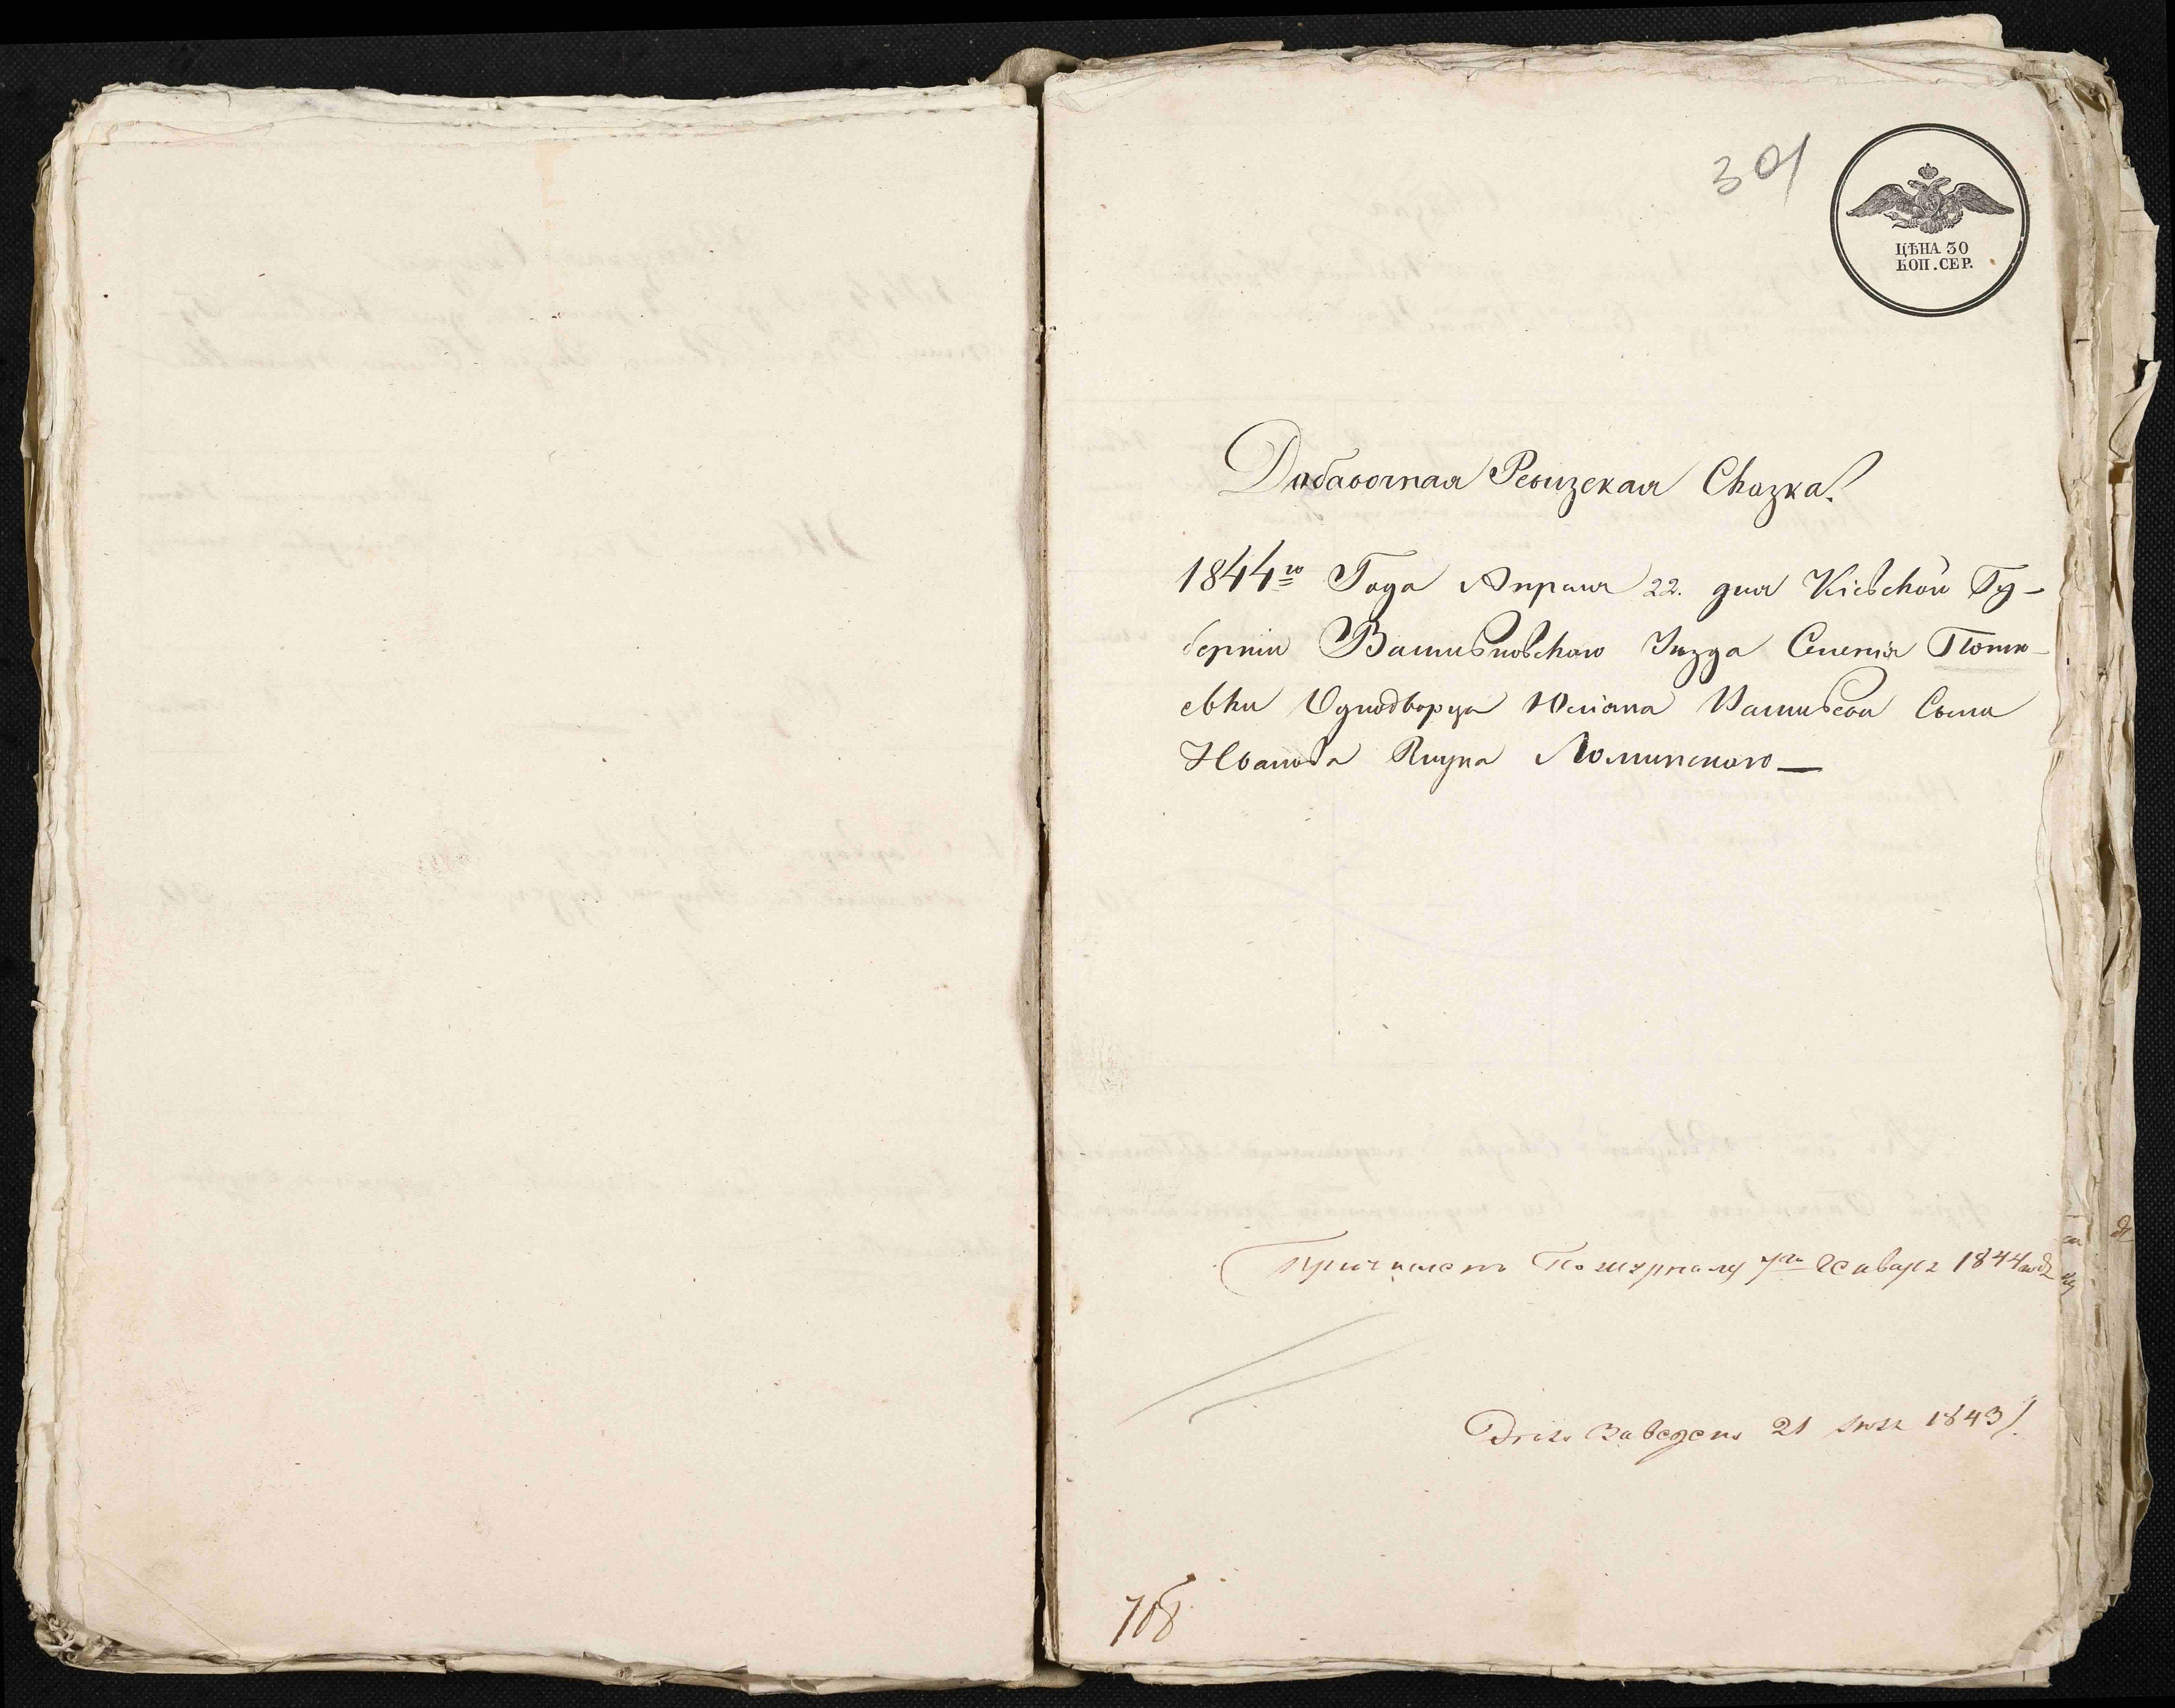 301
ЦѢНА 30
КОП. СЕР.
Добавочная Ревизская Сказка.
1844го Года Апреля 22. дня Кіевской Гу-
берніи Васильковскаго Уезда Селенія
евки Однодворца Юліана Васильева Сына
Иванова Внука
По журналу 7го Января 1844
Заведено 21 1843